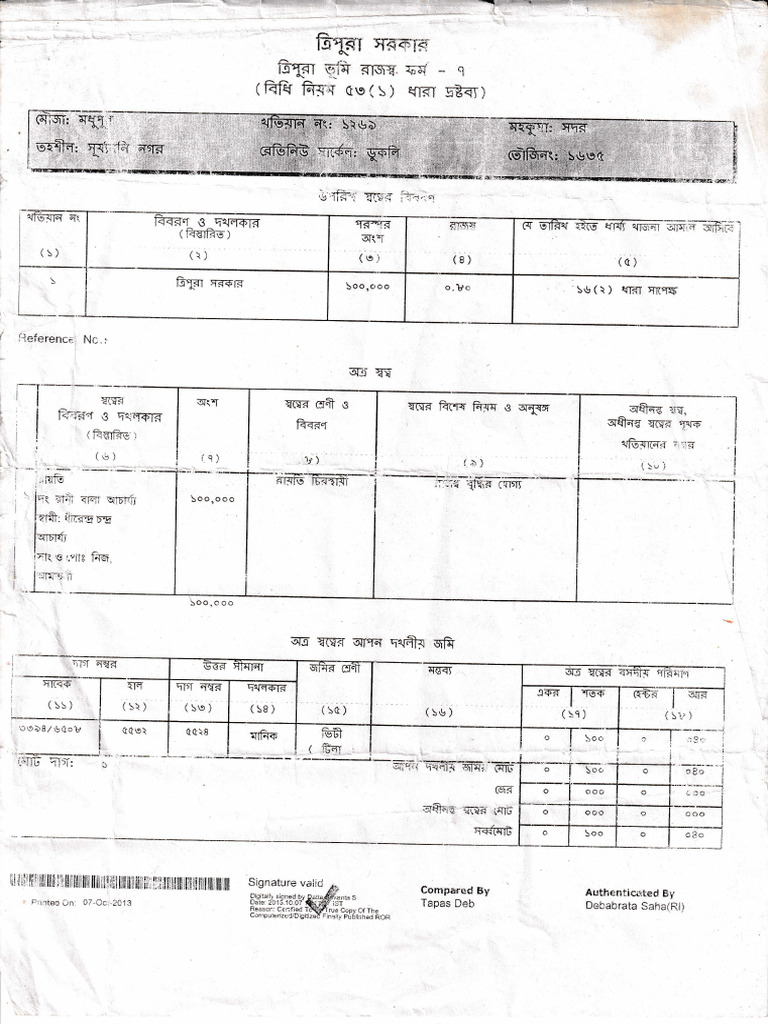 ত্রিপুরা সরকার
ত্রিপুরা ভূমি রাজস্ব ফর্ম - ৭
(বিধি নিয়ম ৫৩(১) ধারা দ্রষ্টব্য)
মৌজা: খতিয়ান নং: ১২৬৯ মহকুমা: সদর
তহশীল: নগর রেভিনিউ সার্কেল: ডুকলি তৌজিনং: ১৬৩৫
উপরিস্থ স্বত্বের বিবরণ
খতিয়ান নং বিবরণ ও দখলকার পরস্পর রাজস্ব যে তারিখ হইতে ধার্য্য খাজনা আমলে আসিবে
(বিস্তারিত) অংশ
(১) (২) (৩) (৪) (৫)
১ ত্রিপুরা সরকার ১০০,০০০ ০.৮০ ১৬(২) ধারা সাপেক্ষ
Reference No.:
অত্র স্বত্ব
স্বত্বের অংশ স্বত্বের শ্রেণী ও স্বত্বের বিশেষ নিয়ম ও অনুষঙ্গ অধীনস্ত স্বত্ব,
বিবরণ ও দখলকার বিবরণ অধীনস্ত স্বত্বের পৃথক
(বিস্তারিত) খতিয়ানের নম্বর
(৬) (৭) ৮) (৯) (১০)
রায়তি চিরস্থায়ী বৃদ্ধির যোগ্য
বালা আচার্য্য ১০০,০০০
স্বামী: ধীরেন্দ্র চন্দ্র
আচার্য্য
সাং ও পোঃ নিজ,
১০০,০০০
অত্র স্বত্বের আপন দখলীয় জমি
দাগ নম্বর উত্তর সীমানা জমির শ্রেণী মন্তব্য অত্র স্বত্বের পরিমাণ
সাবেক হাল দাগ নম্বর দখলকার একর শতক হেক্টর আর
(১১) (১২) (১৩) (১৪) (১৫) (১৬) (১৭) (১৮)
৩৩৯৪/৬৫০৮ ৫৫৩২ ৫৫২৪ মানিক ভিটী ০ ১০০ ০ ০৪০
( টিলা
মোট দাগ: ১ আপন দখলীয় জমির মোট ০ ১০০ ০ ০৪০
জের ০ ০০০ ০ ০০০
অধীনস্ত স্বত্বের মোট ০ ০০০ ০ ০০০
সর্বমোট ০ ১০০ ০ ০৪০
Signature valid
Digitally signed by
Date: 2013.10.07 IST
Reason: Certified True Copy Of The
Computerized/Digitized Finally Published ROR
Printed On: 07-Oct-2013
Compared By
Tapas Deb
Authenticated By
Debabrata Saha(RI)